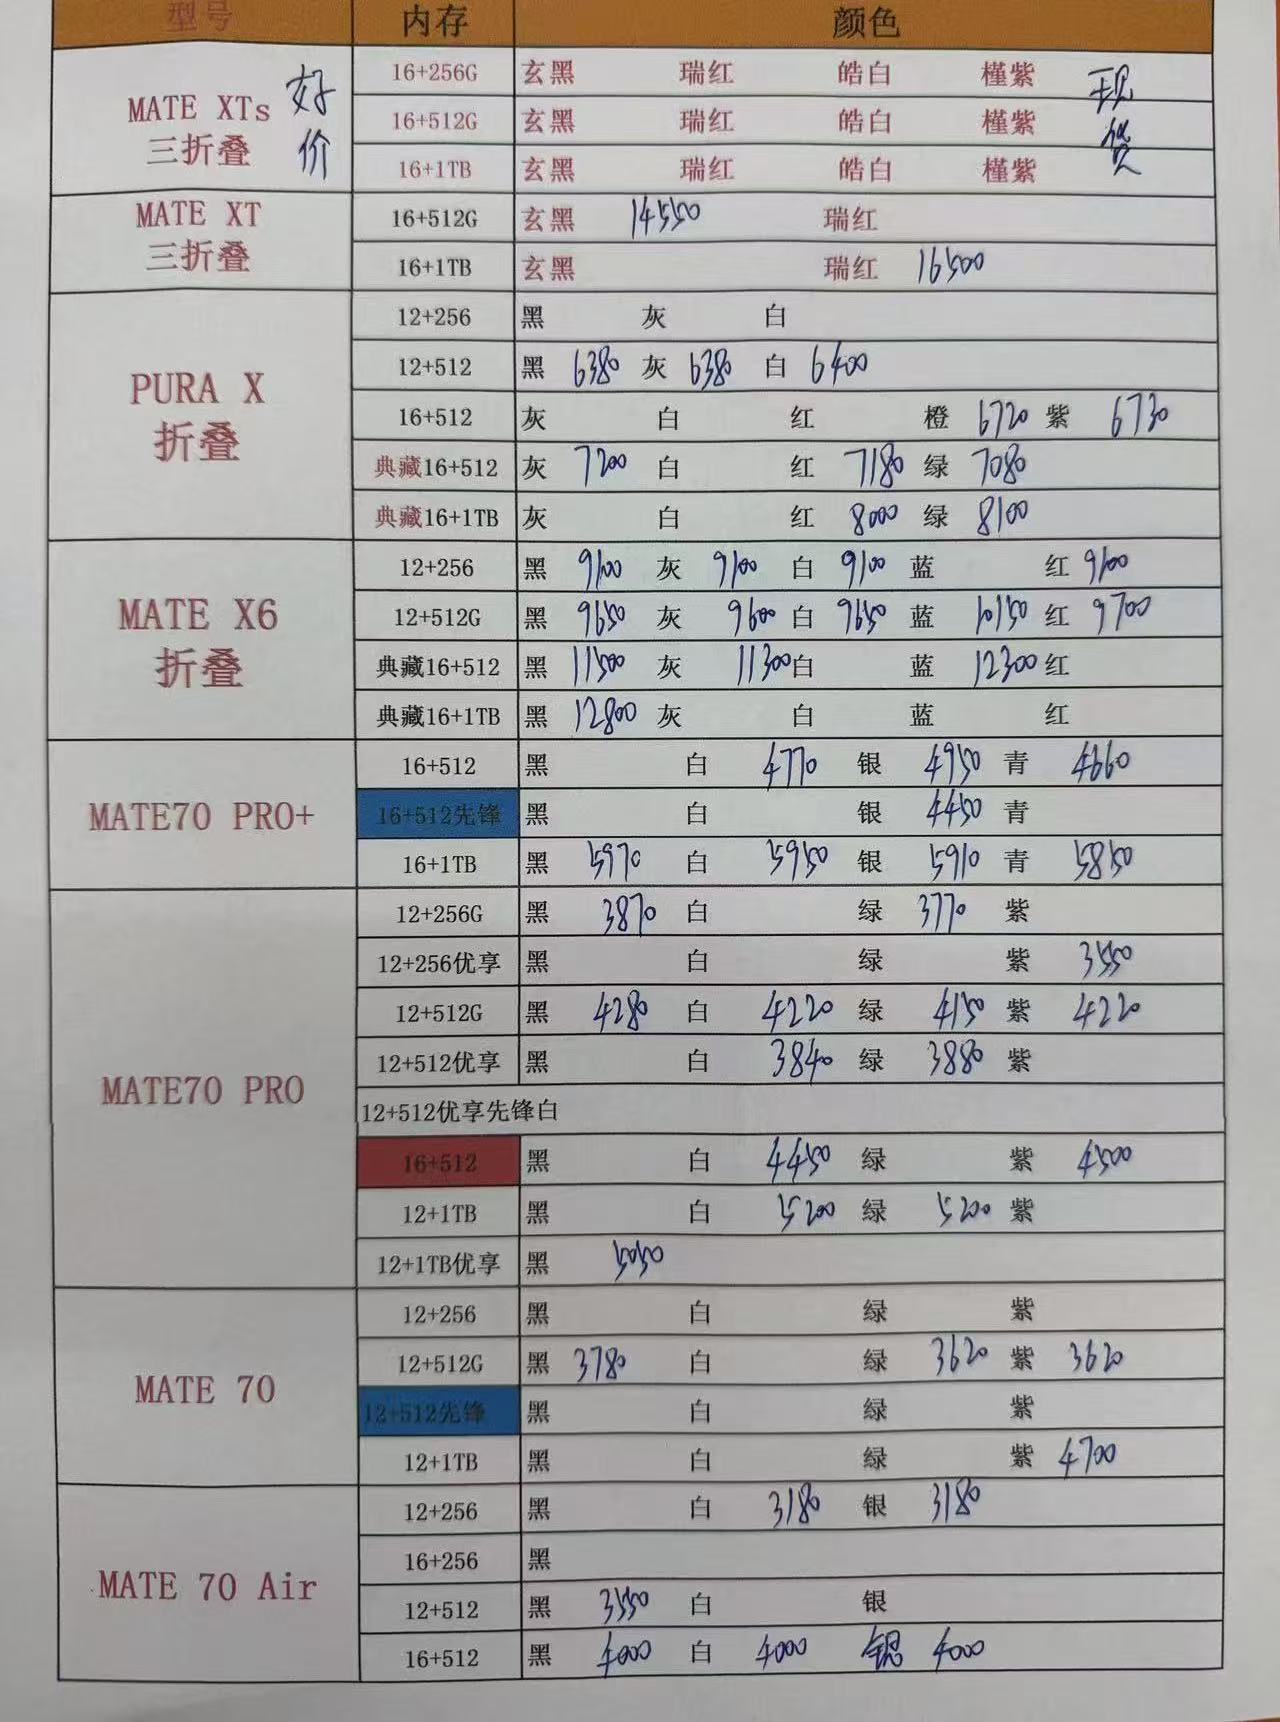 型号 内存 颜色
MATE XTs 三折叠 好价 现货
16+256G 玄黑 瑞红 皓白 槿紫
16+512G 玄黑 瑞红 皓白 槿紫
16+1TB 玄黑 瑞红 皓白 槿紫
MATE XT 三折叠
16+512G 玄黑 14550 瑞红
16+1TB 玄黑 瑞红 16500
PURA X 折叠
12+256 黑 灰 白
12+512 黑 6380 灰 6380 白 6400
16+512 灰 白 红 橙 6720 紫 6730
典藏16+512 灰 7200 白 红 7180 绿 7080
典藏16+1TB 灰 白 红 8000 绿 8100
MATE X6 折叠
12+256 黑 9100 灰 9100 白 9100 蓝 红 9100
12+512G 黑 9650 灰 9600 白 9650 蓝 10150 红 9700
典藏16+512 黑 11500 灰 11300 白 蓝 12300 红
典藏16+1TB 黑 12800 灰 白 蓝 红
MATE70 PRO+
16+512 黑 白 4770 银 4950 青 4660
16+512先锋 黑 白 银 4450 青
16+1TB 黑 5970 白 5950 银 5910 青 5850
MATE70 PRO
12+256G 黑 3870 白 绿 3770 紫
12+256优享 黑 白 绿 紫 3550
12+512G 黑 4280 白 4220 绿 4150 紫 4220
12+512优享 黑 白 3840 绿 3880 紫
12+512优享先锋白
16+512 黑 白 4450 绿 紫 4500
12+1TB 黑 白 5200 绿 5200 紫
12+1TB优享 黑 5050
MATE 70
12+256 黑 白 绿 紫
12+512G 黑 3780 白 绿 3620 紫 3620
12+512先锋 黑 白 绿 紫
12+1TB 黑 白 绿 紫 4700
MATE 70 Air
12+256 黑 白 3180 银 3180
16+256 黑
12+512 黑 3550 白 银
16+512 黑 4000 白 4000 银 4000